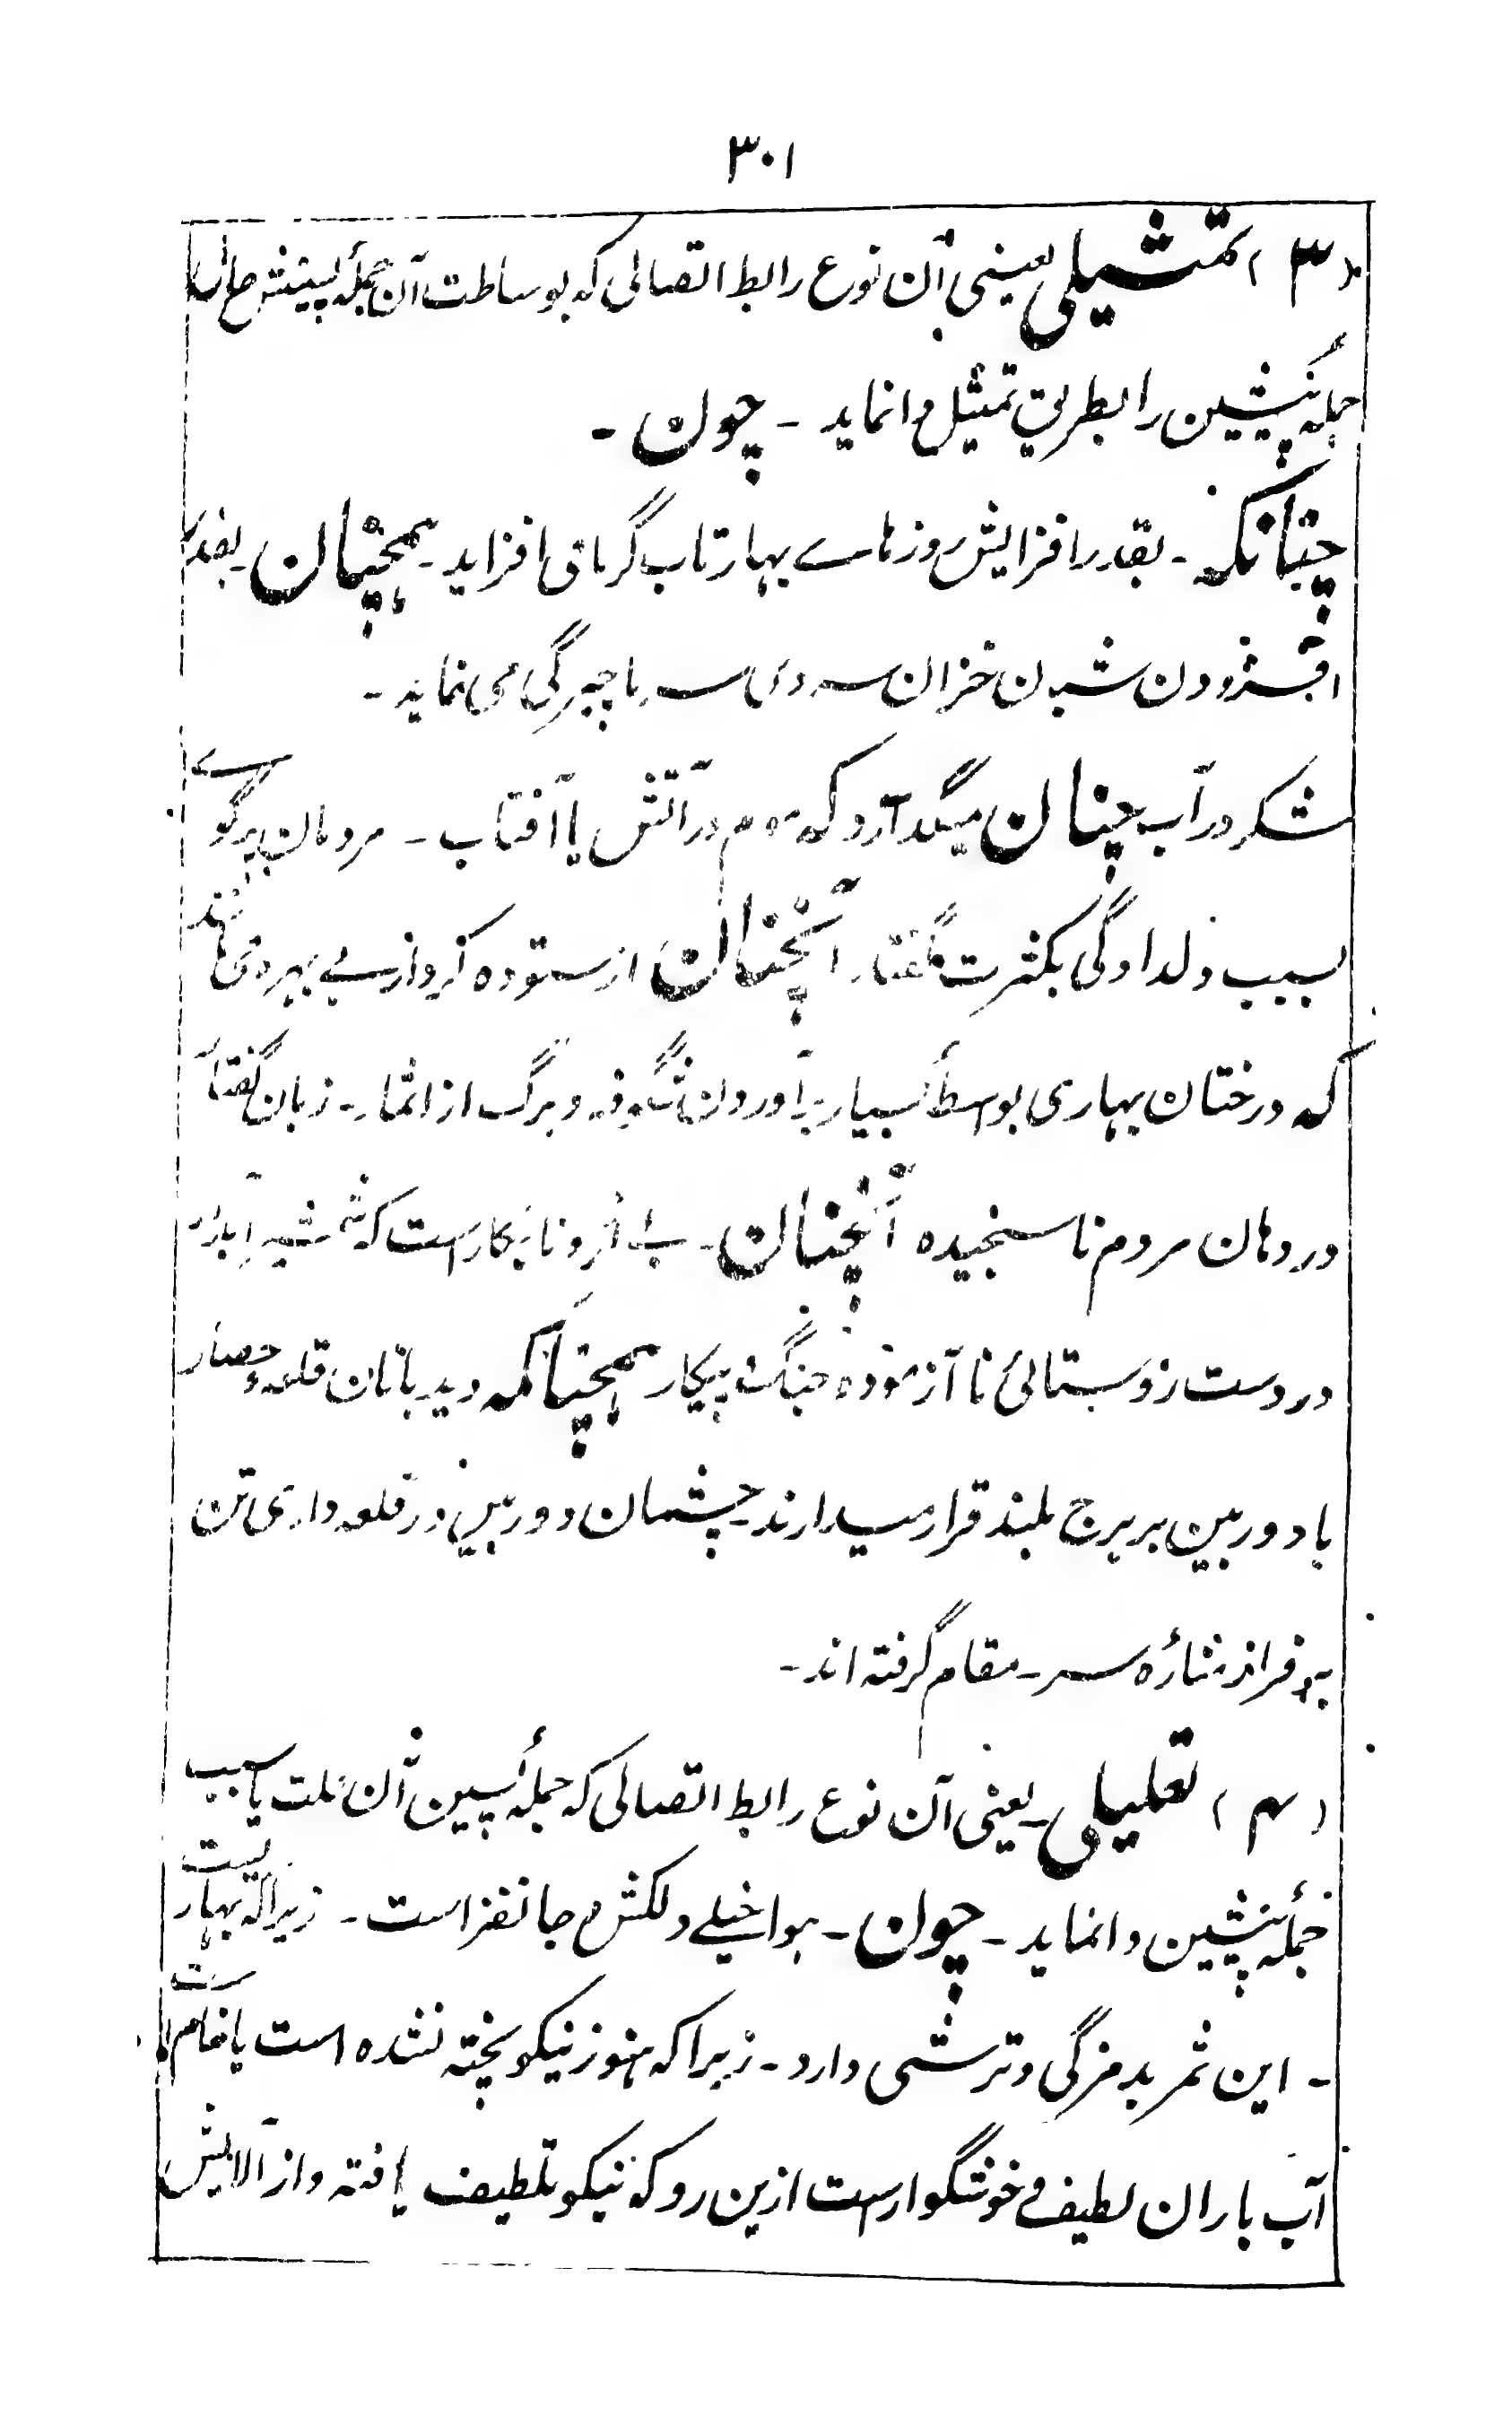 ۳۰۱
(۳) تمثیلی یعنی آن نوع رابط اتصالی که بوساطت آن جملهٔ پسینش
جملهٔ پیشین را بطریق تمثیل وانماید - چون -
چنانکه - بقدر افزایش روزهاے بہار تاب گرما می افزاید - ہمچنان - بقدر
افزودن شبان خزان سردی سرما چیرگی می نماید -
شکر در آب چنان میگدازد که موم در آتش یا آفتاب - مردمان پرگوے
بسبب دلدادگی بکثرت گفتار آنچنان از ستوده کردار بے بہره می مانند
که درختان بہاری بواسطهٔ بسیار بآوردن شگوفه و برگ از اثمار - زبان گفتار
در دہان مردم ناسنجیده آنچنان - بے اثر و نابکار است که شمشیر آبدار
در دست روستائی ناآزموده جنگ و پیکار ہمچنانکه دیدبانان قلعه و حصار
با دوربین بر برج بلند قرار میدارند - چشمان دوربین در قلعه داری تن
بر فراز منارهٔ سر - مقام گرفته اند -
(۴) تعلیلی - یعنی آن نوع رابط اتصالی که جملهٔ پسین آن علت یا سبب
جملهٔ پیشین وانماید - چون - ہوا خیلے دلکش و جانفزا است - زیراکه بہار یست
- این ثمر بدمزگی و ترشی دارد - زیراکه ہنوز نیکو پخته نشده است یا خام است
آب باران لطیف و خوشگوار است ازین رو که نیکو تلطیف یافته و از آلایش